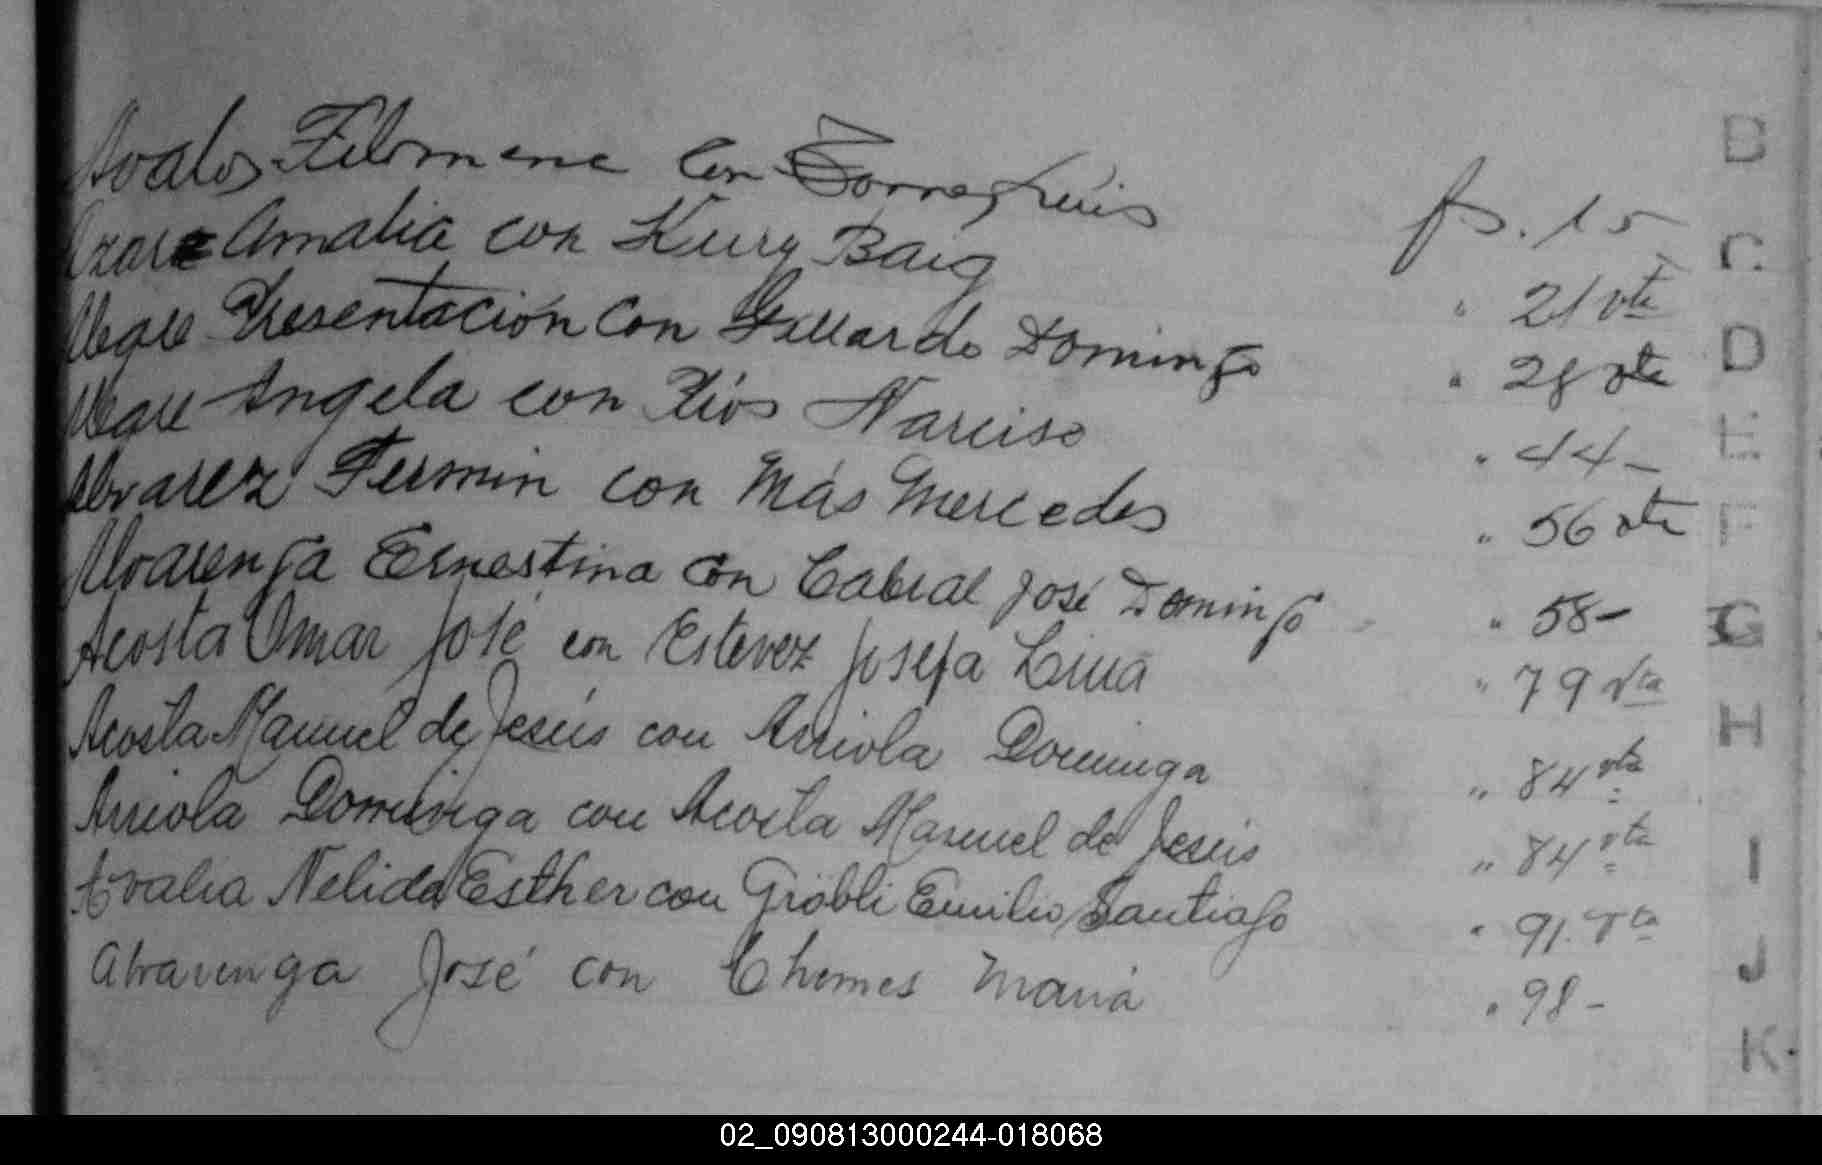 Avalos Filomena con Torres Luis fs. 15
Azar Amalia con Kury Baig " 21 vta
Alegre Presentación con Gallardo Domingo " 28 vta
Alegre Angela con Ríos Narciso " 44 -
Alvarez Fermin con Más Mercedes " 56 vta
Alvarenga Ernestina con Cabral José Domingo " 58 -
Acosta Omar José con Estevez Josefa Lina " 79 vta
Acosta Manuel de Jesús con Arriola Dominga " 84 vta
Arriola Dominga con Acosta Manuel de Jesús " 84 vta
Nelida Esther con Grobli Emilio Santiago " 91. vta
Alvarenga José con Chemes María " 98 -
B
C
D
E
F
G
H
I
J
K
02_090813000244-018068